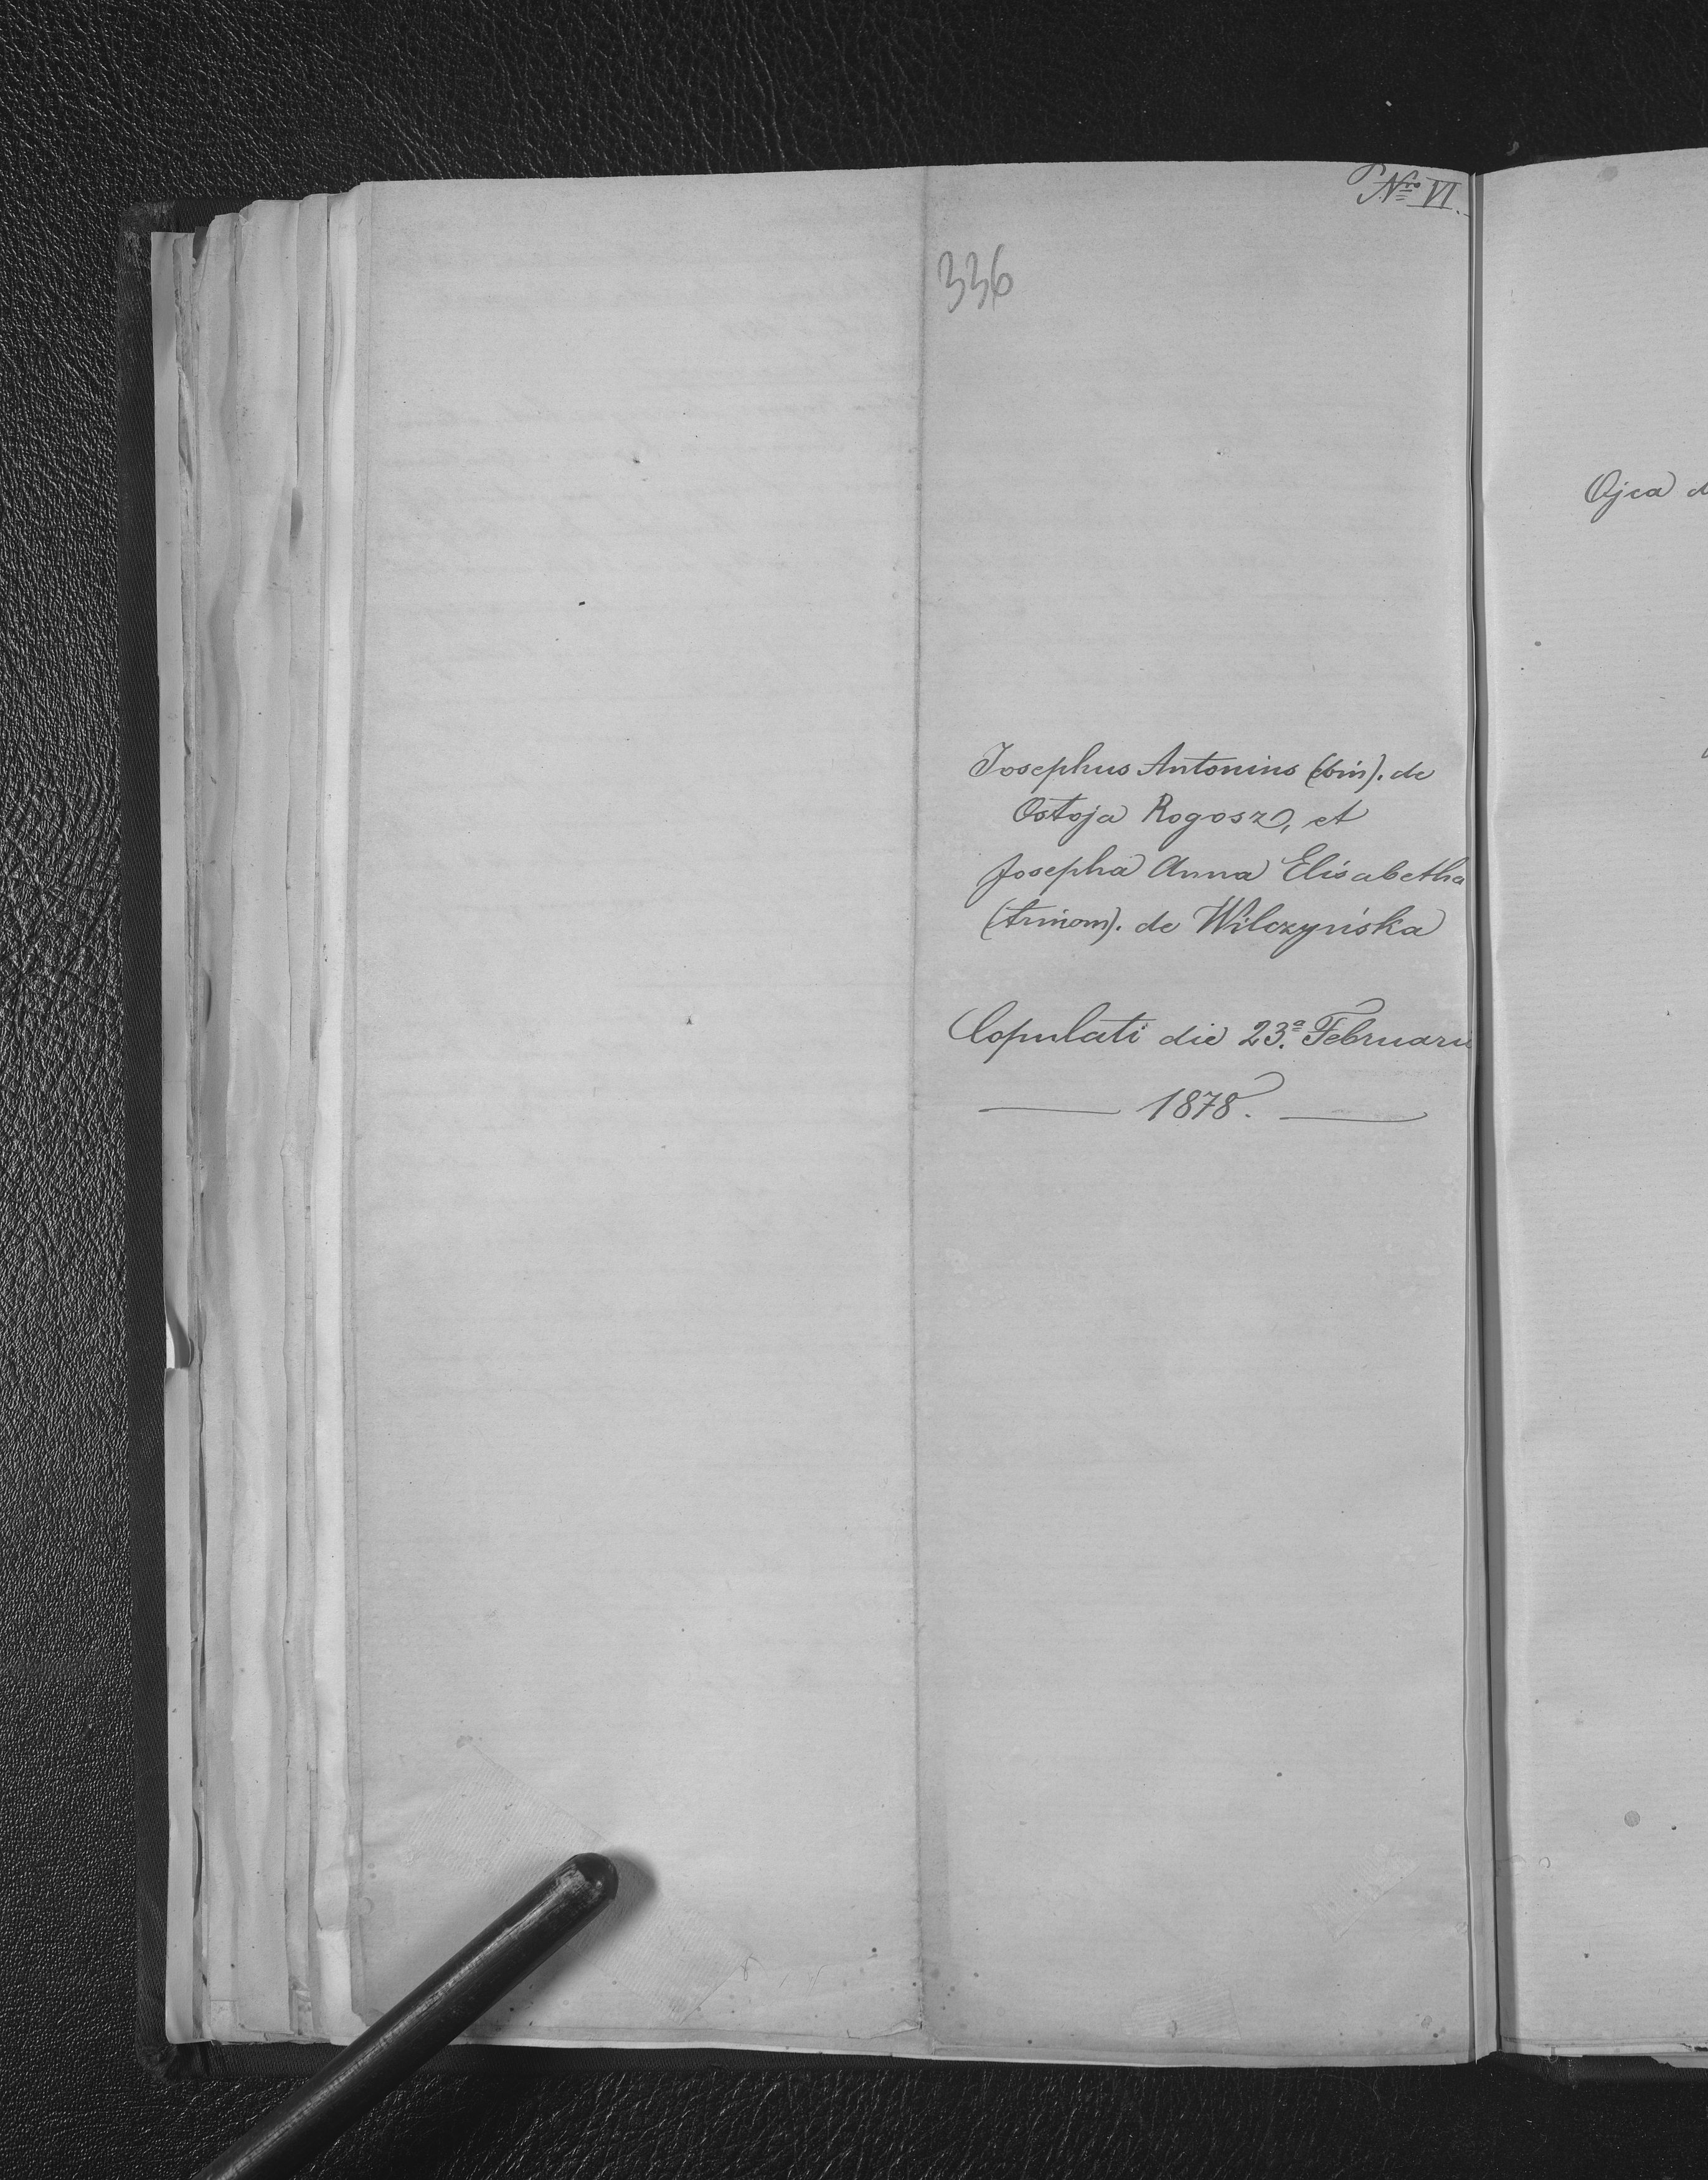 Nro VI.
336
Josephus Antonius (bin). de
Ostoja Rogosz, et
Josepha Anna Elisabetha
(trinom). de Wilczyńska
Copulati die 23.a Februarii
1878.
Ojca